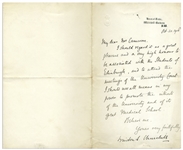 My dear Mr Cameron,
I should regard it as a great
pleasure and a very high honour to
be associated with the Students of
Edinburgh, and to attend the
meetings of the University Court.
I shall use all means in my
power to promote the interest
of the University and of its
great Medical School.
Believe me
Yours very faithfully